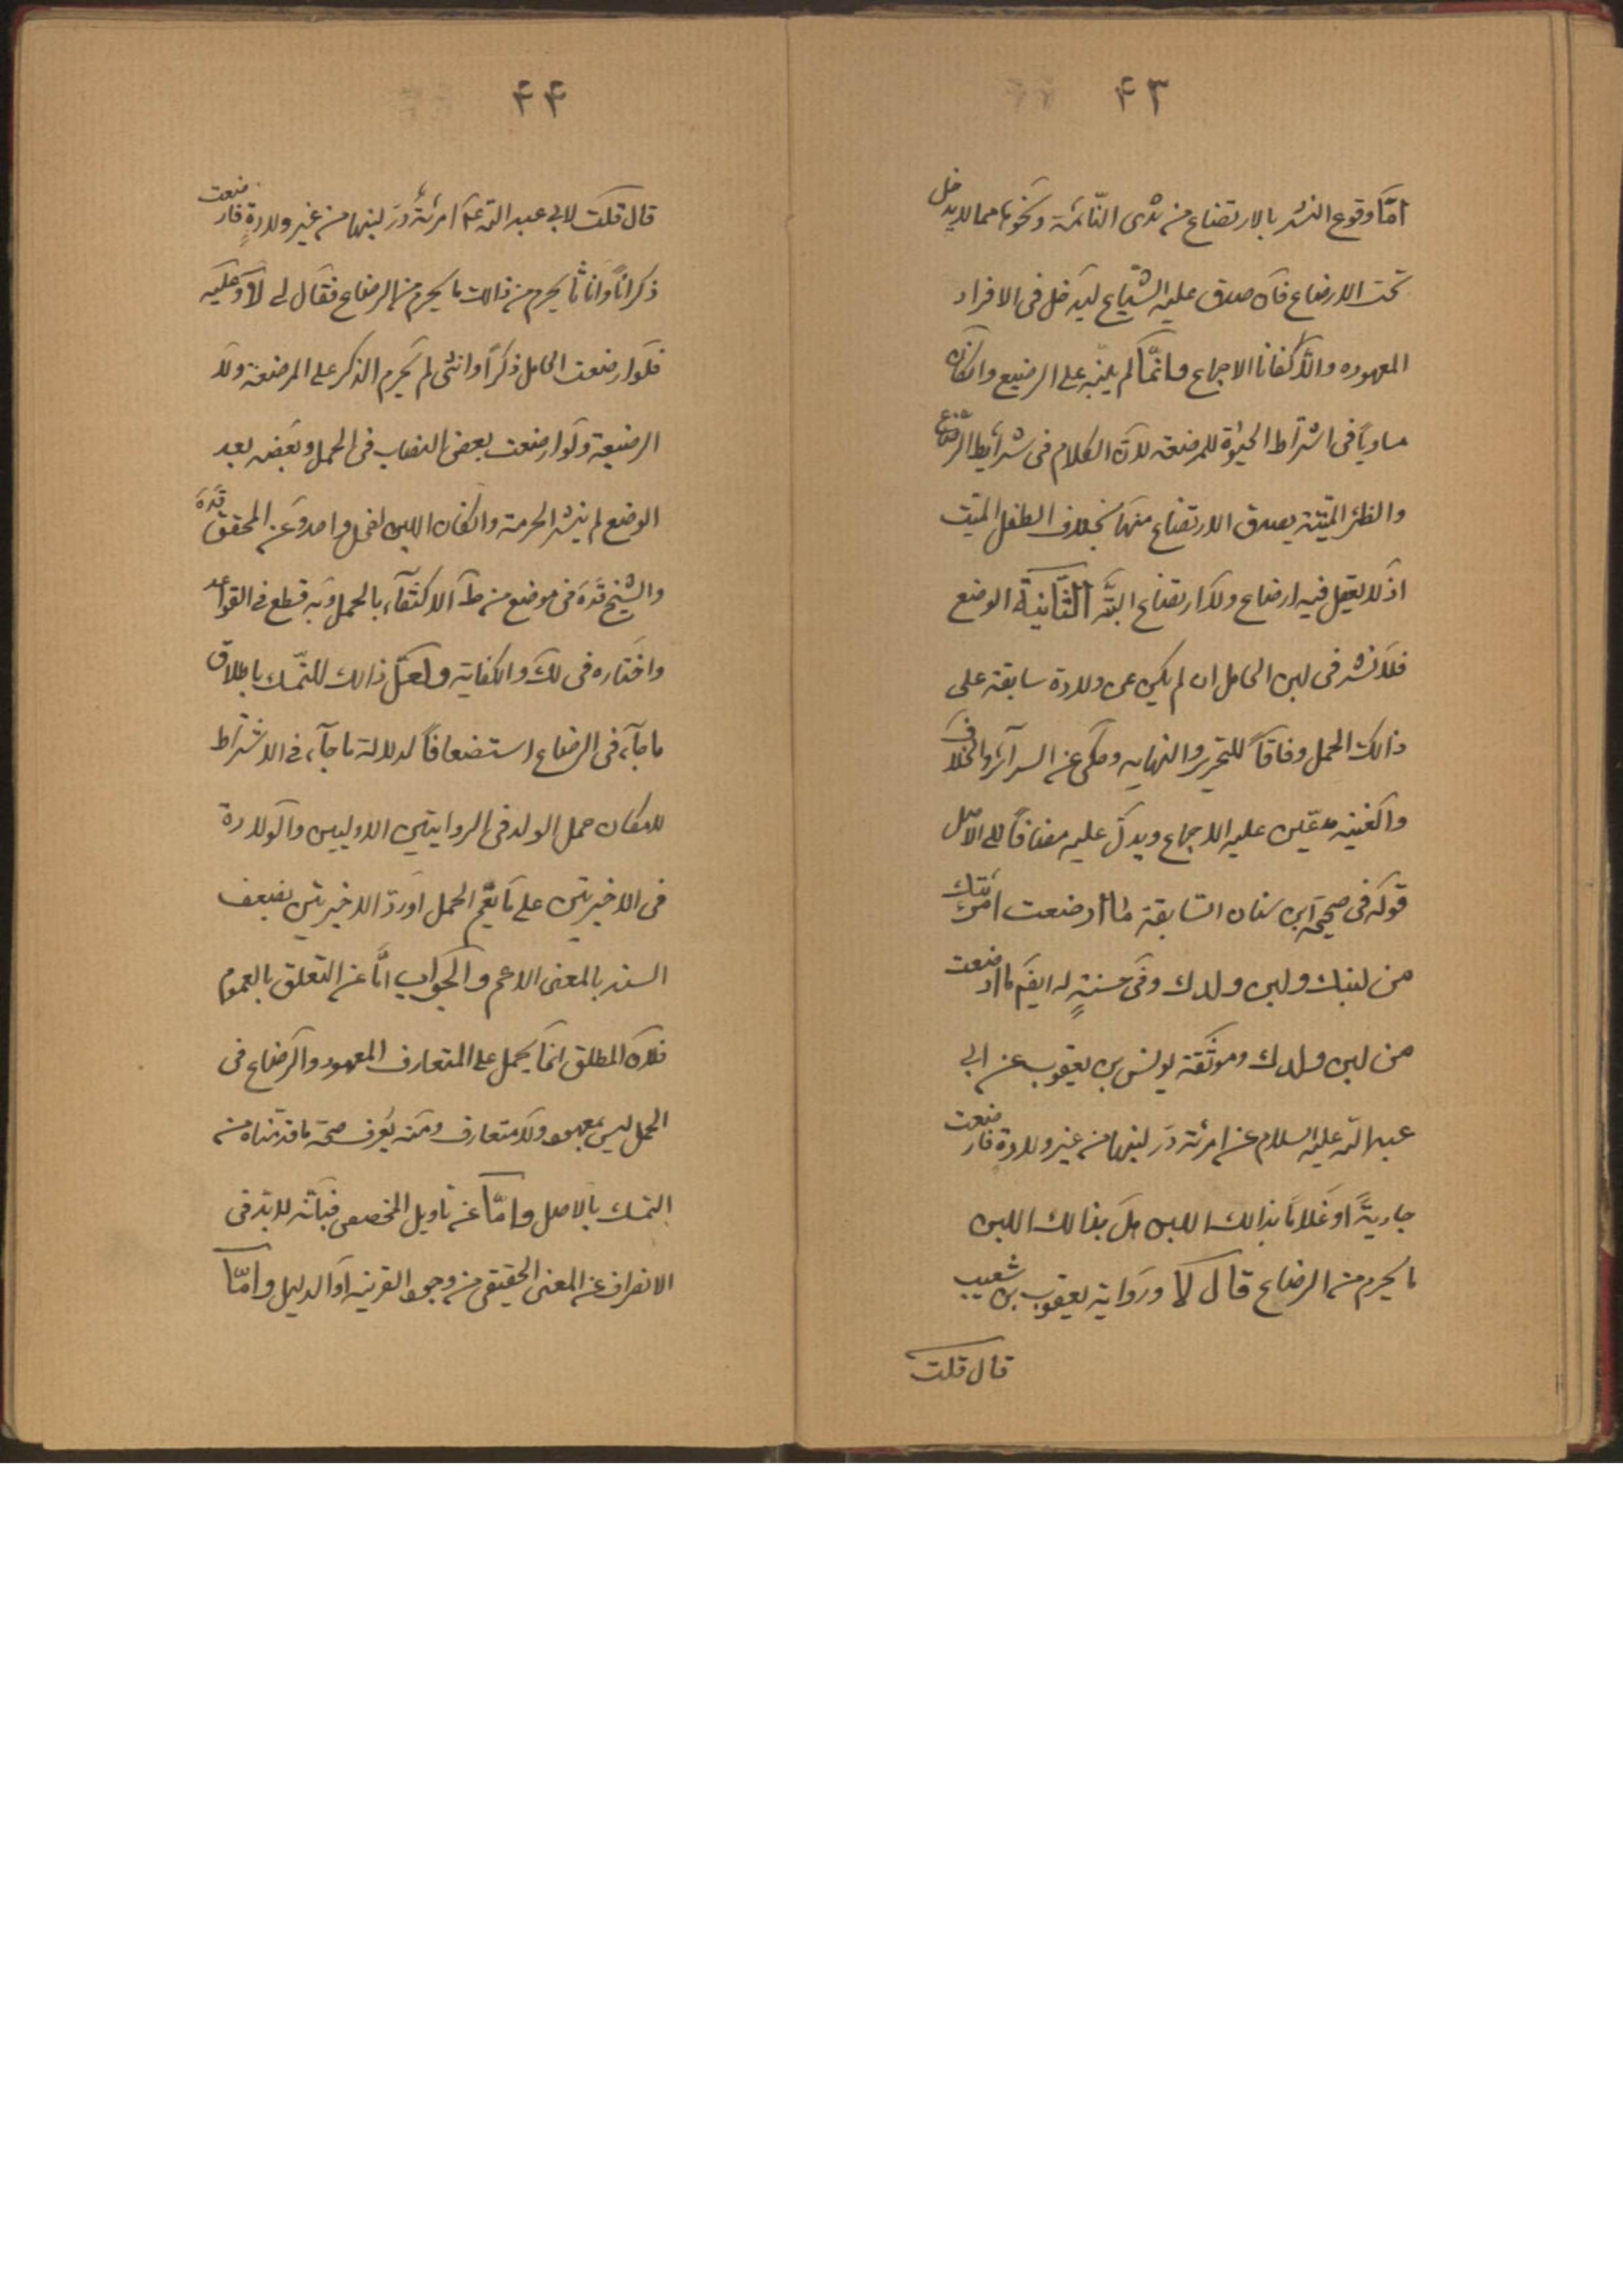 ۴۳
امّا وقوع النشر بالارتضاع من ثدى النّائمة ونحوها مما لا يدخل
تحت الارضاع فان صدق عليه الشياع ليدخل فى الافراد
المعهوده والّا كفانا الاجماع وانّما لم ينبّه على الرضيع وان كان
مساوياً فى اشتراط الحيوة للمرضعة لانّ الكلام فى شرايط الرضاع
والظئر الميّتة يصدق الارتضاع منها بخلاف الطفل الميّت
اذ لا يعقل فيه ارضاع ولا ارتضاع البتّه الثّانية الوضع
فلا نشر فى لبن الحامل ان لم يكن عن ولادة سابقة على
ذالك الحمل وفاقاً للتحرير والنهايه وحكى عن السرآئر والخلاف
والغنيه مدّعين عليه الاجماع ويدلّ عليه مضافاً الى الاصل
قوله فى صحيحة ابن سنان السّابقة ما ارضعت امرئتك
من لبنك ولبن ولدك وفى حسنةٍ له ايضً ما ارضعت
من لبن ولدك وموثّقة يونس بن يعقوب عن ابى
عبد اللّه عليه السلام عن امرئة درّ لبنها من غير ولادةٍ فارضعت
جاريةً او غلاماً بذالك اللبن هل بذالك اللبن
ما يحرم من الرضاع قال لا ورواية يعقوب بن شعيب
قال قلت
۴۴
قال قلت لابى عبد اللّه عم امرئةٌ درّ لبنها من غير ولادةٍ فارضعت
ذكراناً واناثاً يحرم من ذالك ما يحرم من الرضاع فقال لى لا وعليه
فلو ارضعت الحامل ذكراً وانثى لم يحرم الذكر على المرضعة ولا
الرضيعة ولو ارضعت بعض النصاب فى الحمل وبعضه بعد
الوضع لم ينشر الحرمة وان كان اللبن لفحل واحد وعن المحقق قدّه
والشيخ قدّه فى موضع من ط الاكتفآء بالحمل وبه قطع فى القواعد
واختاره فى لك والكفاية ولعلّ ذالك للتمّسك باطلاق
ما جآء فى الرضاع استضعافاً لدلالة ما جآء فى الاشتراط
لامكان حمل الولد فى الروايتين الاوليين والولادة
فى الاخيرتين على ما يعّم الحمل او ردّ الاخيرتين بضعف
السند بالمعنى الاعم والجواب امّا عن التعلق بالعموم
فلان المطلق انما يحمل على المتعارف المعهود والرضاع فى
الحمل ليس بمعهود ولا متعارف ومنه يعرف صحة ما قدّمناه من
التمسك بالاصل وامّا عن تاويل المخصص فبانّه لا بدّ فى
الانصراف عن المعنى الحقيقى من وجود القرينه او الدليل وامّا